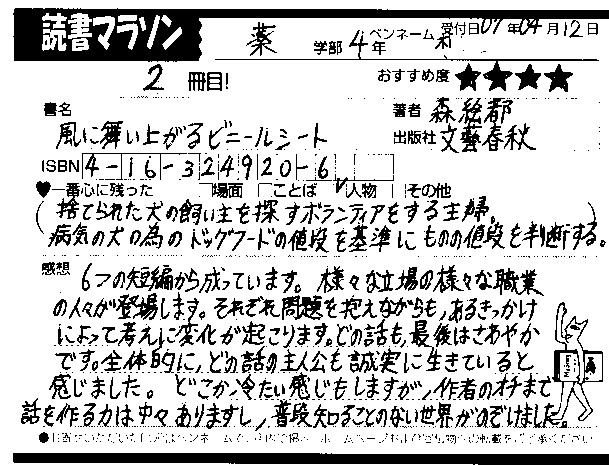 読書マラソン 薬 学部 4 年 ペンネーム 受付日 07年 04月 12日
2 冊目! おすすめ度 ★★★★
書名 著者 森絵都
風に舞い上がるビニールシート 出版社 文藝春秋
ISBN 4-16-324920-6
♥一番心に残った □場面 □ことば ✓人物 □その他
(捨てられた犬の飼い主を探すボランティアをする主婦。
病気の犬の為のドッグフードの値段を基準にものの値段を判断する。)
感想 6つの短編から成っています。様々な立場の様々な職業
の人々が登場します。それぞれ問題を抱えながらも、あるきっかけ
によって考えに変化が起こります。どの話も、最後はさわやか
です。全体的に、どの話の主人公も誠実に生きていると
感じました。どこか冷たい感じもしますが、作者のオチまで
話を作る力は中々ありますし、普段知ることのない世界がのぞけました。